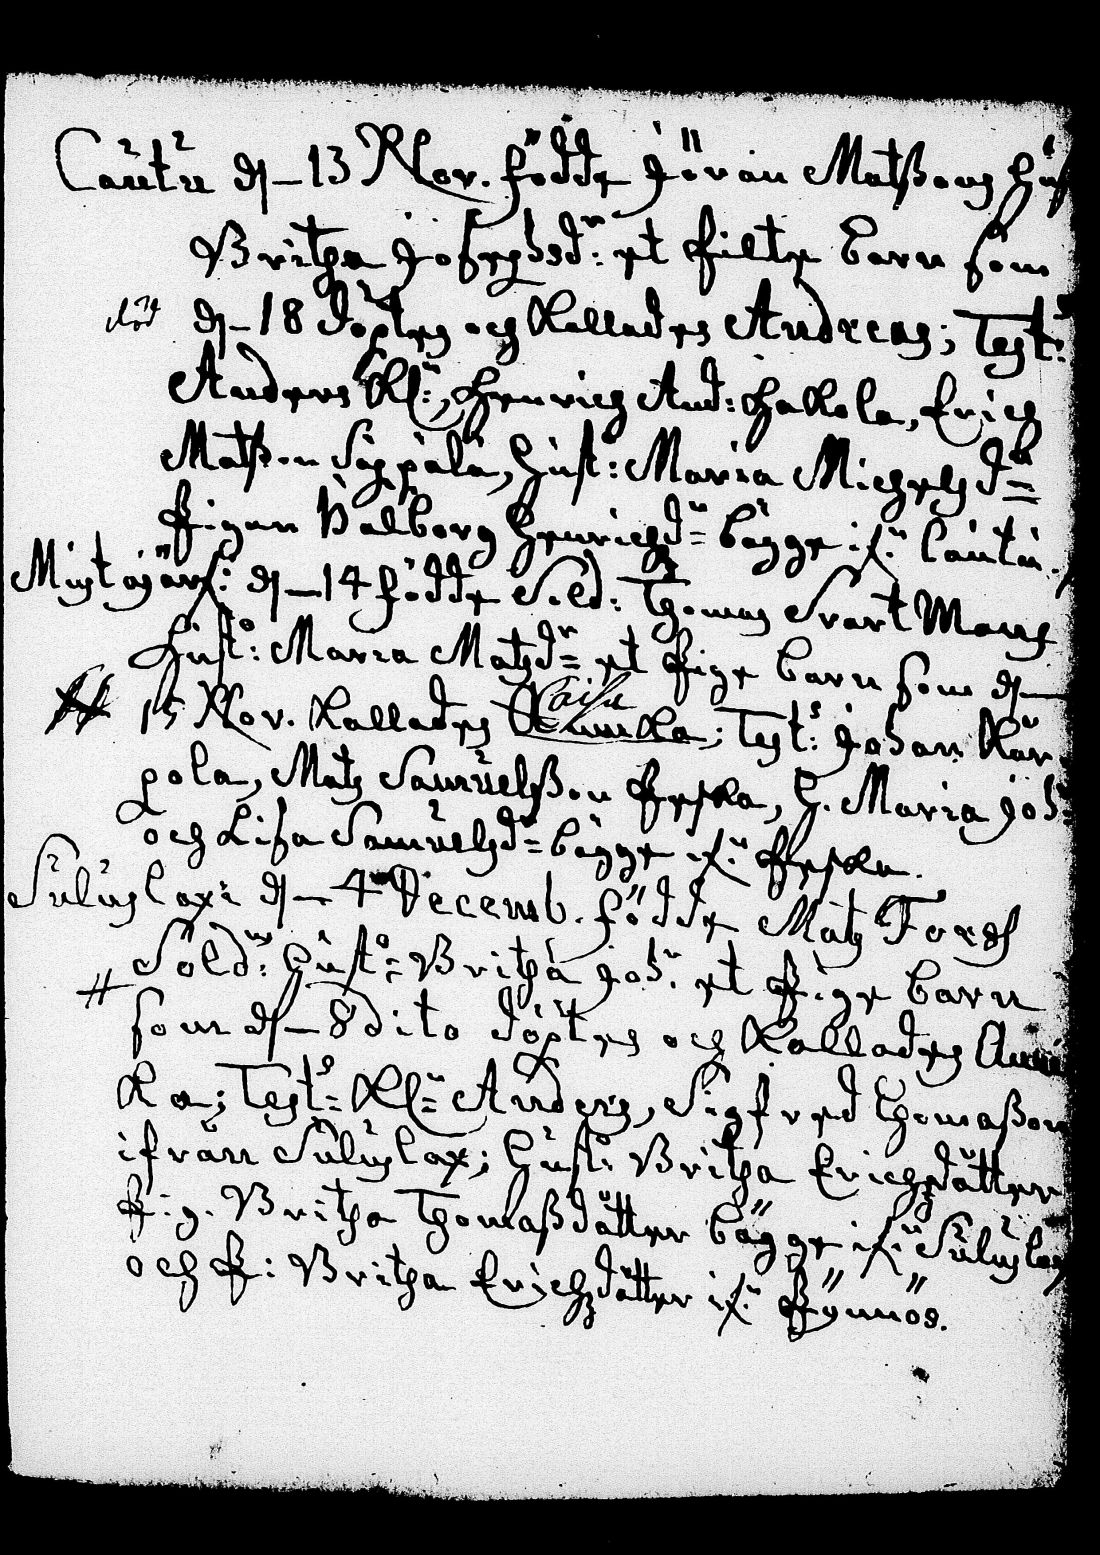 Cautu d. 13 Nov. födde Jöran Matßons Hust
Britha Josephsdr: et Filte barn som
död d. 18 döptes och Kallades Andreas; Test:
Anders Kl:, Henrich And: Hakola, Erich
Matßon Säppälä, Hust: Maria Michelsdr
Pigan Walborg Henrichsdr bägge if:n Cautu.
Mustajärf: d. 14 födde Sold: Thomas Svart Mans
Hust: Maria Matsdr et Pige barn som d.
15 Nov. Kallades Caisa Annika; Test: Johan Kar
pola, Mats Samuelßon Peska, H. Maria Joh:
och Lisa Samuelsdr bägge if:n Peska.
Suluslax: d. 4 Decemb. födde Mats Fors
Sold: Hust: Britha Joh: et Pige barn
som d. 8 dito döptes och Kallades Anni
Ka; Test: Kl: Anders, Sigfred Thomaßon
ifrån Suluslax; Hust: Britha Erichsdåtter
Pig. Britha Thomaßdåtter bägge if:n Suluslax
och P: Britha Erichsdåtter if:n Pynnös.